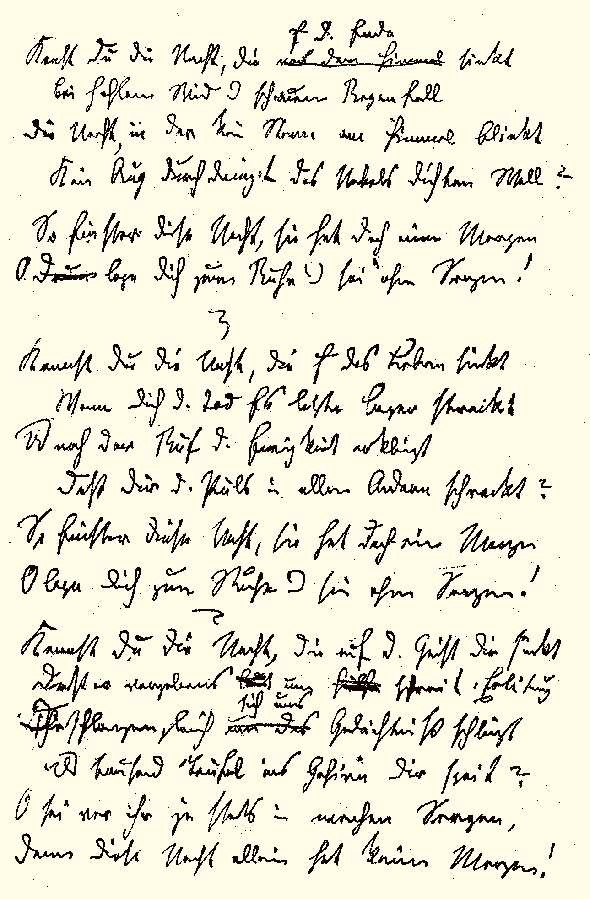 f d. Erde
Kennst du die Nacht, die auf den Himmel sinkt
bei hohlem Wind u schwerem Regenfall
Die Nacht, in der kein Stern am Himmel blinkt
Kein Aug durchdringt des Nebels dichten Wall?
So finster diese Nacht, sie hat doch einen Morgen
O Drum lege dich zur Ruhe u sei ohne Sorgen!
Kennst du die Nacht, die f das Leben sinkt
Wenn dich d. Tod f's letzte Lager streckt
U nah der Ruf d. Ewigkeit erklingt
Daß dir d. Puls in allen Adern schreckt?
So finster diese Nacht, sie hat doch einen Morgen
O lege dich zur Ruhe u sei ohne Sorgen!
Kennst du die Nacht, die auf d. Geist dir sinkt
Daß er vergebens um schreit
sich ums
Schlangengleich um das Gedächtniß schlingt
U tausend Teufel ins Gehirn dir speit?
O sei vor ihr ja stets in wachen Sorgen,
denn diese Nacht allein hat keinen Morgen!